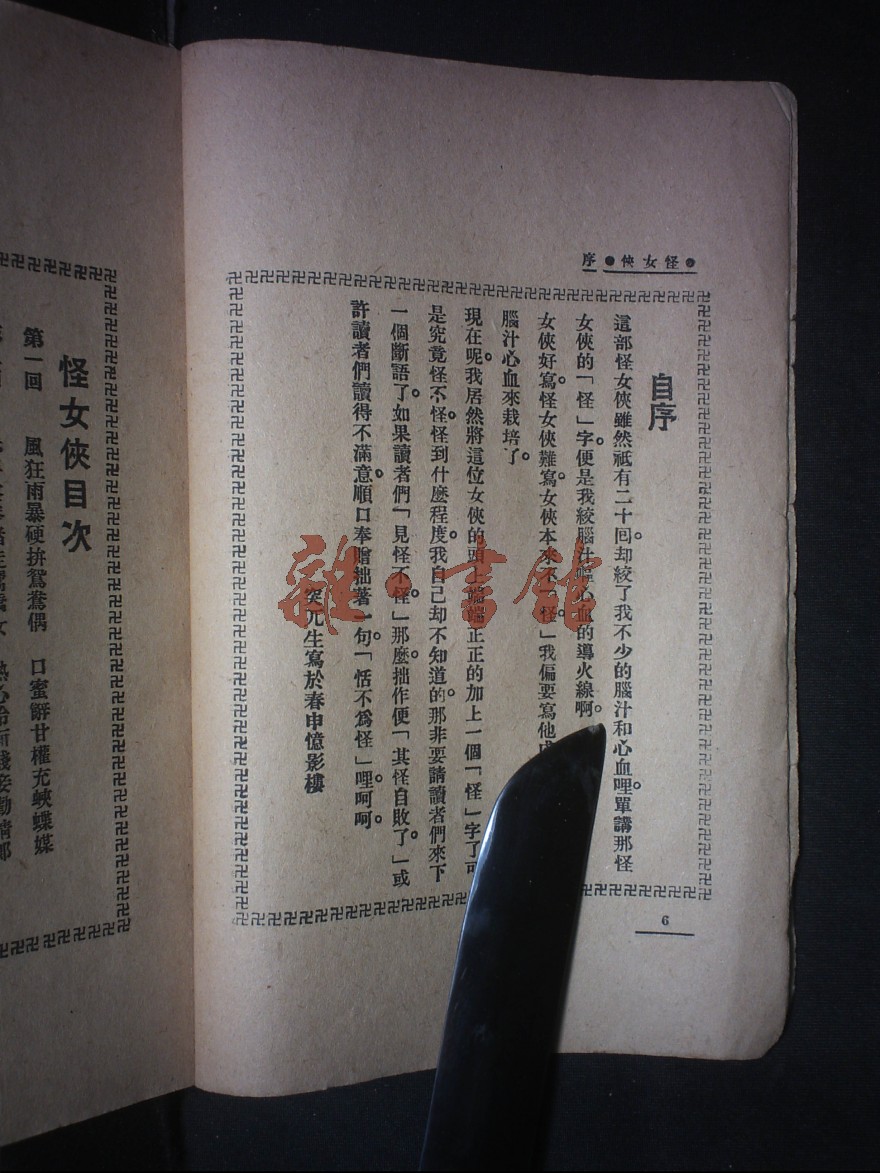 ●怪女俠●序
自序
這部怪女俠雖然祇有二十回。却絞了我不少的腦汁和心血哩。單講那怪
女俠的「怪」字。便是我絞腦汁嘔心血的導火線啊。
女俠好寫。怪女俠難寫。女俠本來不「怪。」我偏要寫他
腦汁心血來栽培了。
現在呢。我居然將這位女俠的頭上端端正正的加上一個「怪」字了。可
是究竟怪不怪。怪到什麼程度。我自己却不知道的。那非要請讀者們來下
一個斷語了。如果讀者們「見怪不怪」那麼拙作便「其怪自敗了。」或
許讀者們讀得不滿意。順口奉贈拙著一句。「恬不爲怪」哩。呵呵。
生寫於春申憶影樓
6
怪女俠目次
第一回 風狂雨暴硬拚鴛鴦偶 口蜜餅甘權充蛺蝶媒
雜·書館